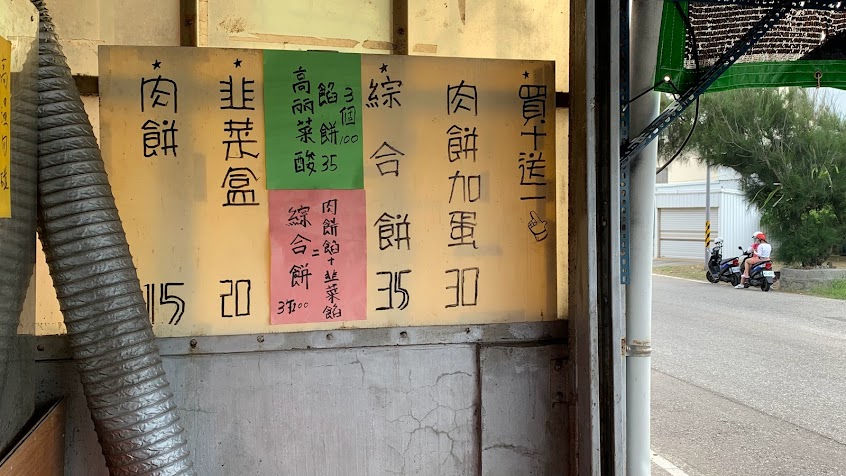 ★買十送一
★肉餅加蛋 30
★綜合餅 35
3個100
餡餅35
高丽菜酸
肉餅餡+韭菜餡
=
綜合餅
3個100
★韭菜盒 20
★肉餅 15